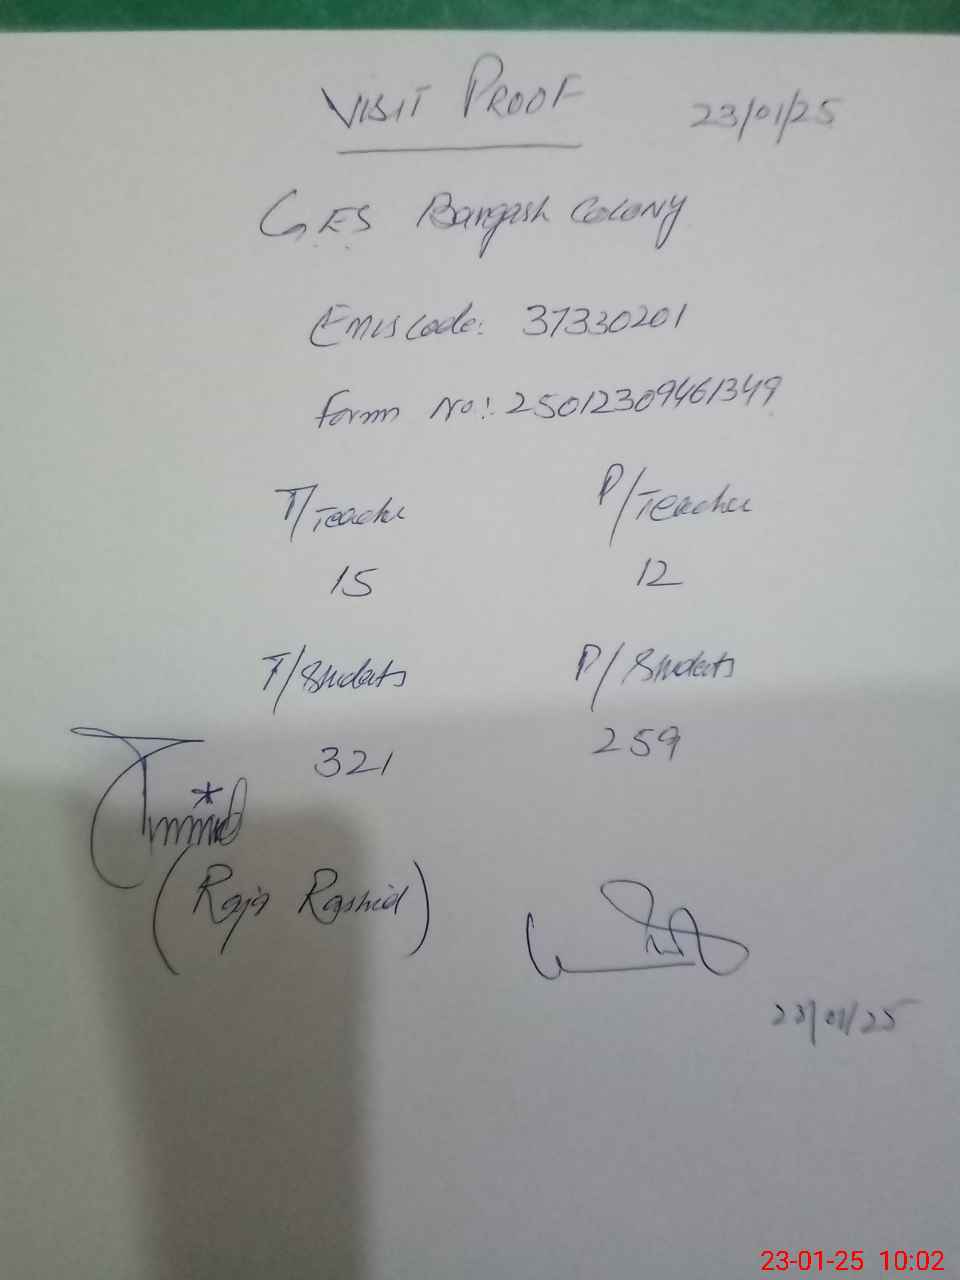 VISIT PROOF 23/01/25
G.E.S Bangash Colony
Emis code: 37330201
Form No.: 25012309461349
T/Teacher P/Teacher
15 12
T/Students P/Students
321 259
(Raja Rashid)
23/01/25
23-01-25 10:02